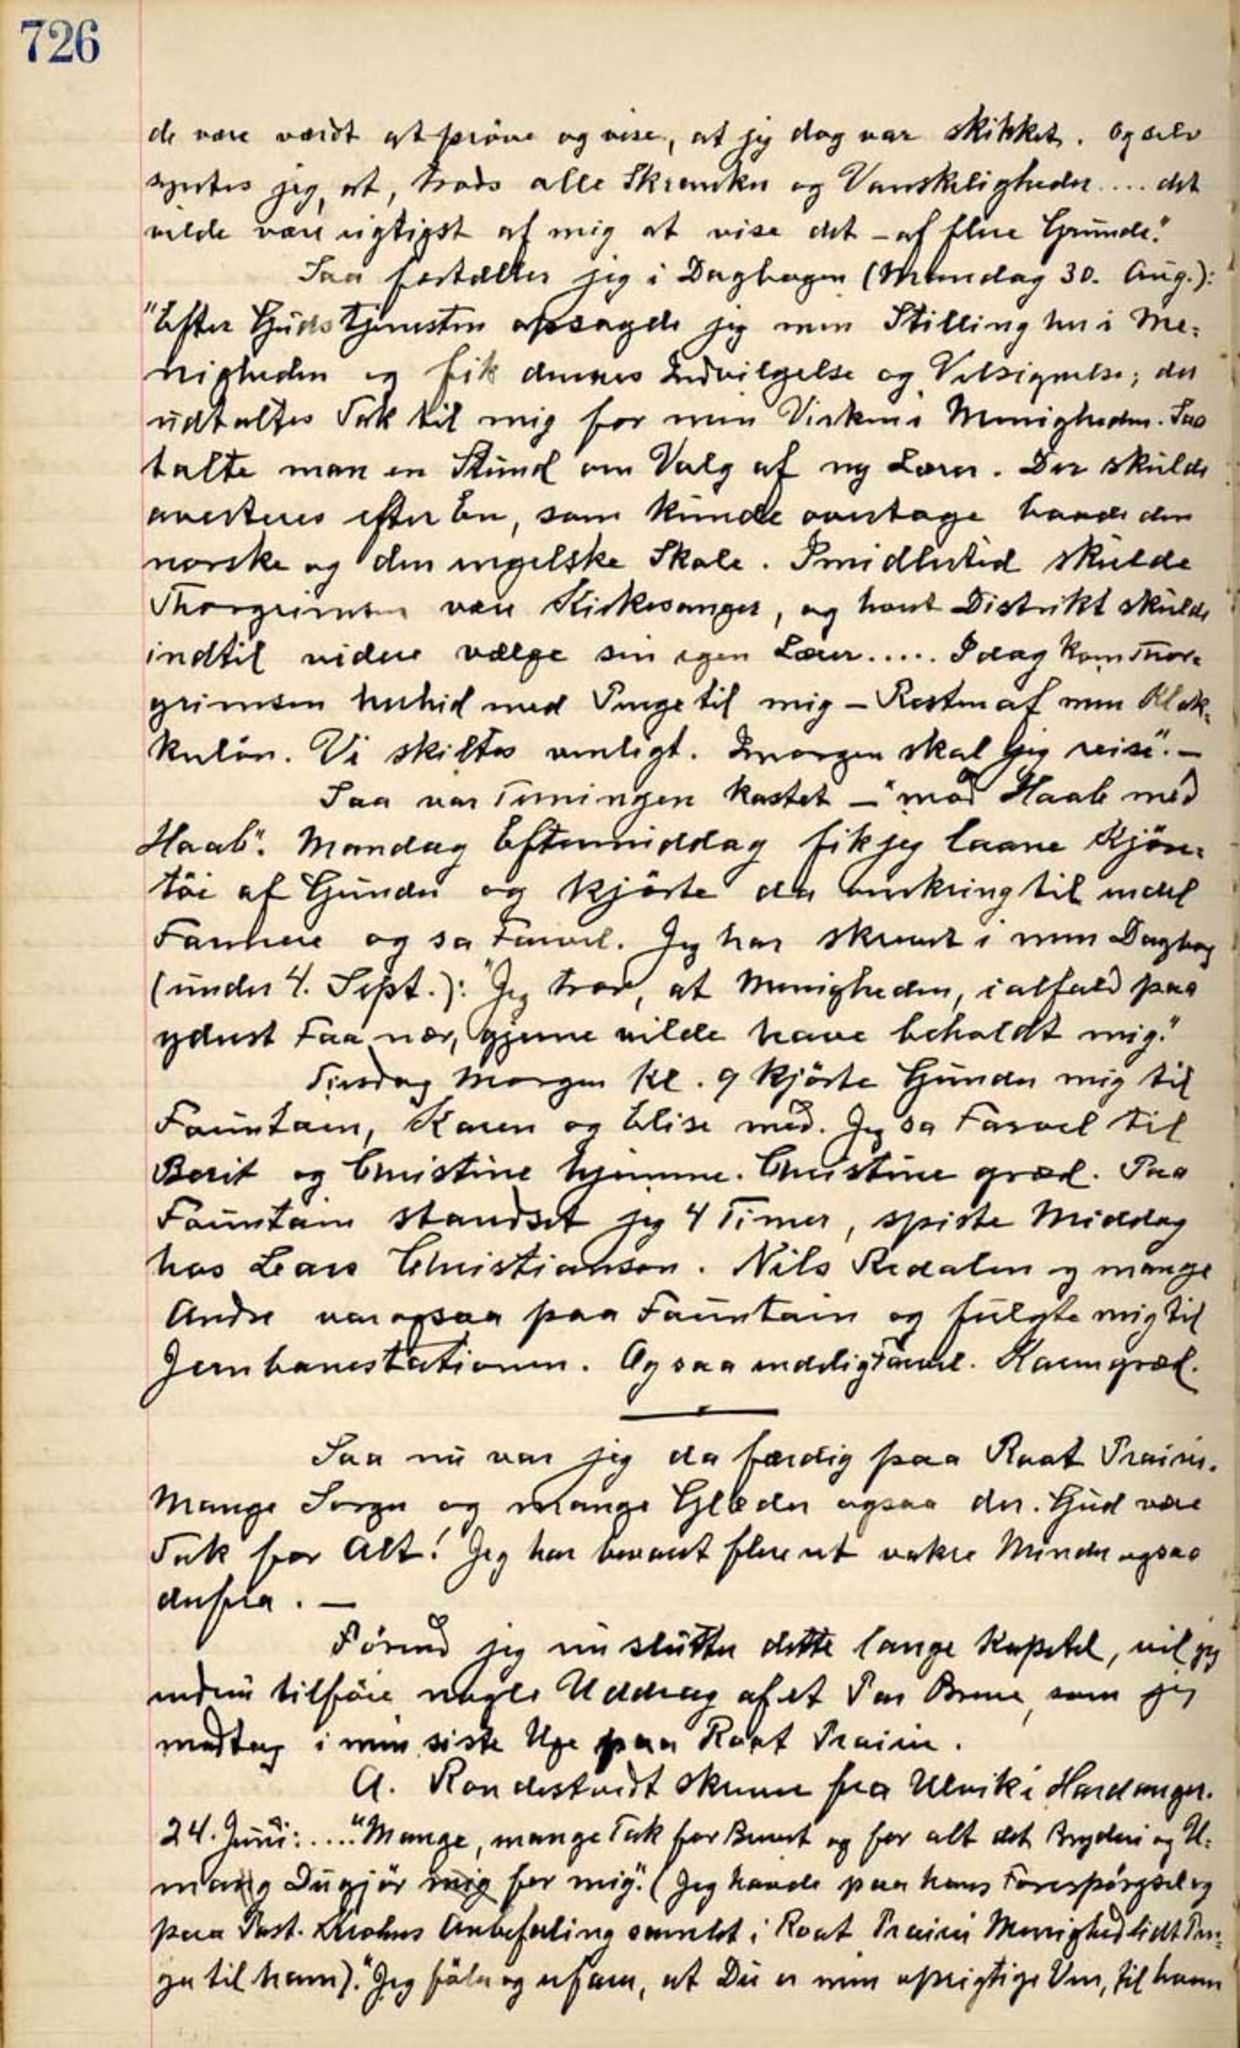 726
de være værdt at prøve og vise, at jeg dog var skikket. Og selv
syntes jeg, at, trods alle Skranker og Vanskeligheder .... det
vilde være rigtigst af mig at vise det – af flere Grunde."
Saa fortæller jeg i Dagbogen (Mandag 30. Aug.):
"Efter Gudstjenesten opsagde jeg min Stilling her i Me=
nigheden og fik dennes Indvilgelse og Velsignelse; der
udtaltes Tak til mig for min Virken i Menigheden. Saa
talte man en Stund om Valg af ny Lærer. Der skulde
averteres efter En, som kunde overtage baade den
norske og den engelske Skole. Imidlertid skulde
Thorgrimsen være Kirkesanger, og hvert Distrikt skulde
indtil videre vælge sin egen Lærer..... Idag kom Thor=
grimsen herhid med Penge til mig – Resten af min Klok=
kerløn. Vi skiltes venligt. Imorgen skal jeg reise". –
Saa var Terningen kastet – "mod Haab med
Haab". Mandag Eftermiddag fik jeg laane Kjøre=
tøi af Gunder og kjørte da omkring til endel
Familier og sa Farvel. Jeg har skrevet i min Dagbog
(under 4. Sept.): "Jeg tror, at Menigheden, ialfald paa
yderst Faa nær, gjerne vilde have beholdt mig."
Tirsdag Morgen kl. 9 kjørte Gunder mig til
Fountain, Karen og Elise med. Jeg sa Farvel til
Berit og Christine hjemme. Christine græd. Paa
Fountain standset jeg 4 Timer, spiste Middag
hos Lars Christianson. Nils Redalen og mange
Andre var ogsaa paa Fountain og fulgte mig til
Jernbanestationen. Og saa endelig Farvel. Karen græd.
Saa nu var jeg da færdig paa Root Prairie.
Mange Sorger og mange Glæder ogsaa der. Gud være
Tak for Alt! Jeg har bevaret flere et vakre Minder ogsaa
derfra. –
Førend jeg nu slutter dette lange Kapitel, vil jeg
endnu tilføie nogle Uddrag af et Par Breve, som jeg
modtog i min siste Uge paa Root Prairie.
A. Rondestvedt skrev fra Ulvik i Hardanger.
24. Juni: .... "Mange, mange Tak for Brevet og for alt det Bryderi og U=
mag Du gjør mig for mig". (Jeg havde paa hans Forespørgsel og
paa Past. Krohns Anbefaling samlet i Root Prairie Menighed lidt Pen=
ge til ham). "Jeg føler og erfarer, at Du er min oprigtige Ven, til hvem